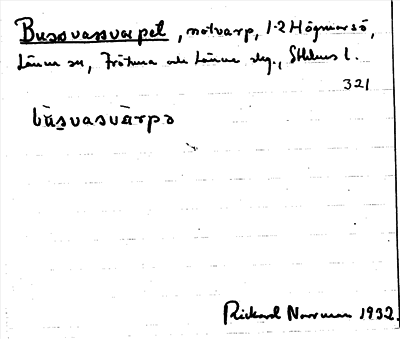 Bussvassvarpet, notvarp, 1-2 Högmarsö,
Länna sn, Frötuna och Länna skg., Sthlms l.
321
bùsvasvàrpə
Rickard Norrman 1932.